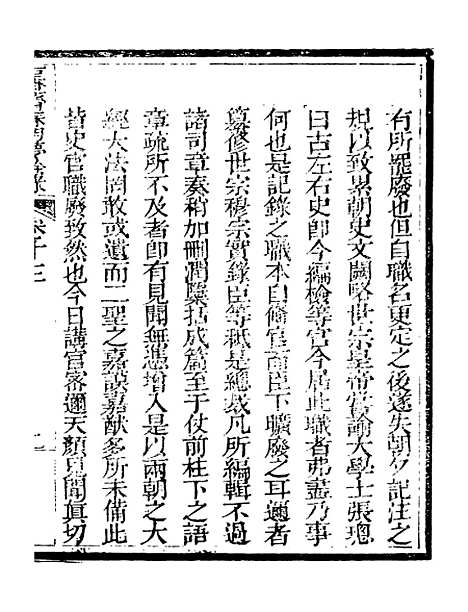 有所罷廢也但自職名更定之後遂失朝夕記注之
規以致累朝史文闕略世宗皇帝嘗諭大學士張璁
曰古左右史即今編檢等官今居此職者弗盡乃事
何也是記錄之職本自備官而臣下曠廢之耳邇者
纂修世宗穆宗實錄臣等祗是總裁凡所編輯不過
諸司章奏稍加刪潤檃括成篇至于仗前柱下之語
章疏所不及者即有見聞無憑增入是以兩朝之大
經大法罔敢或遺而二聖之嘉謨嘉猷多所未備此
皆史官職廢致然也今日講官密邇天顏見聞真切
春明夢餘錄
卷十三